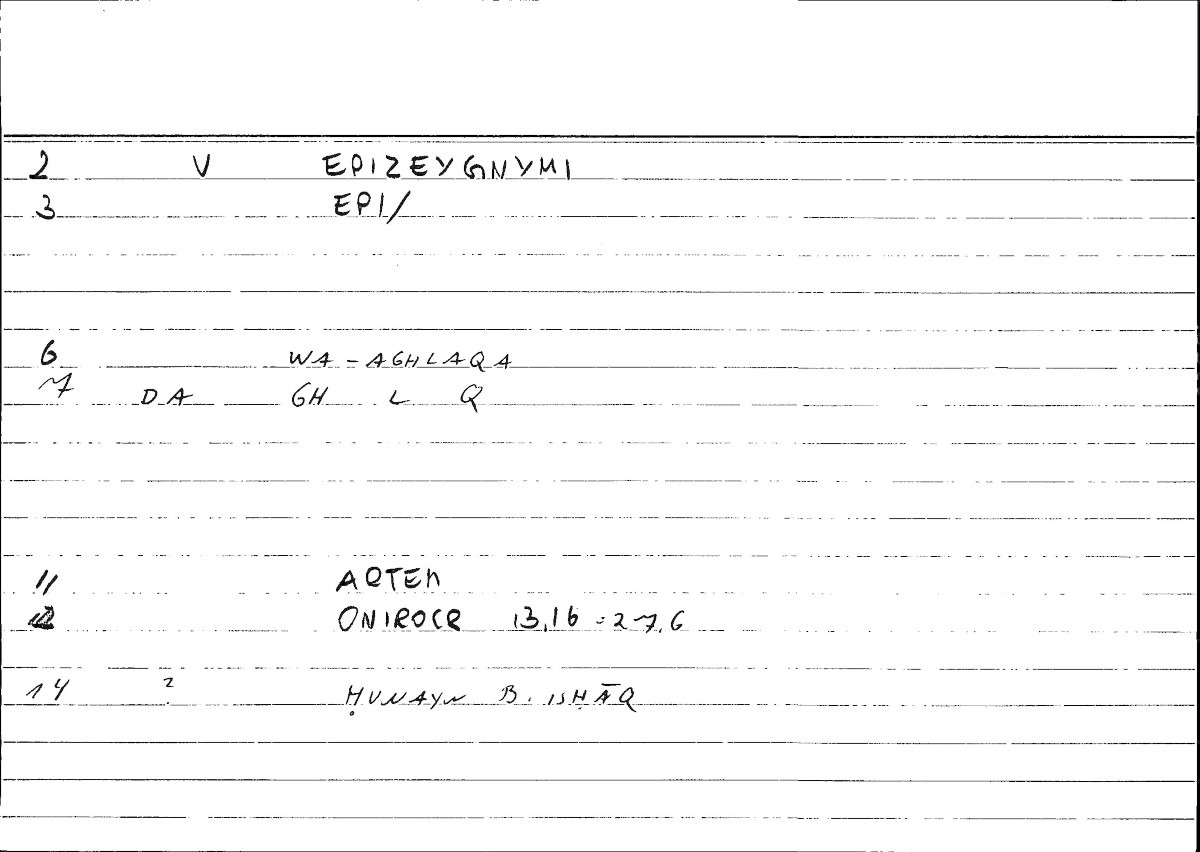 2 V EPIZEYGNYMI
3 EPI/
6 WA-AGHLAQA
7 DA GH L Q
11 ARTEM
12 ONIROCR 13,16 = 27,6
14 ? ḤUNAYN B. ISḤĀQ